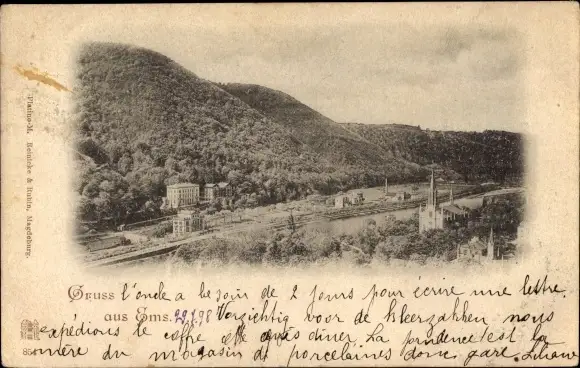 Platino-M. Reinicke & Rubin, Magdeburg.
Gruss l'onde a besoin de 2 jours pour écrire une lettre.
aus Ems. 29.7.98 Verzichtig voor de kleerzakken nous
expédions le coffre après diner. La prudence est la
mère du magasin de porcelaines donc gare. Liliane